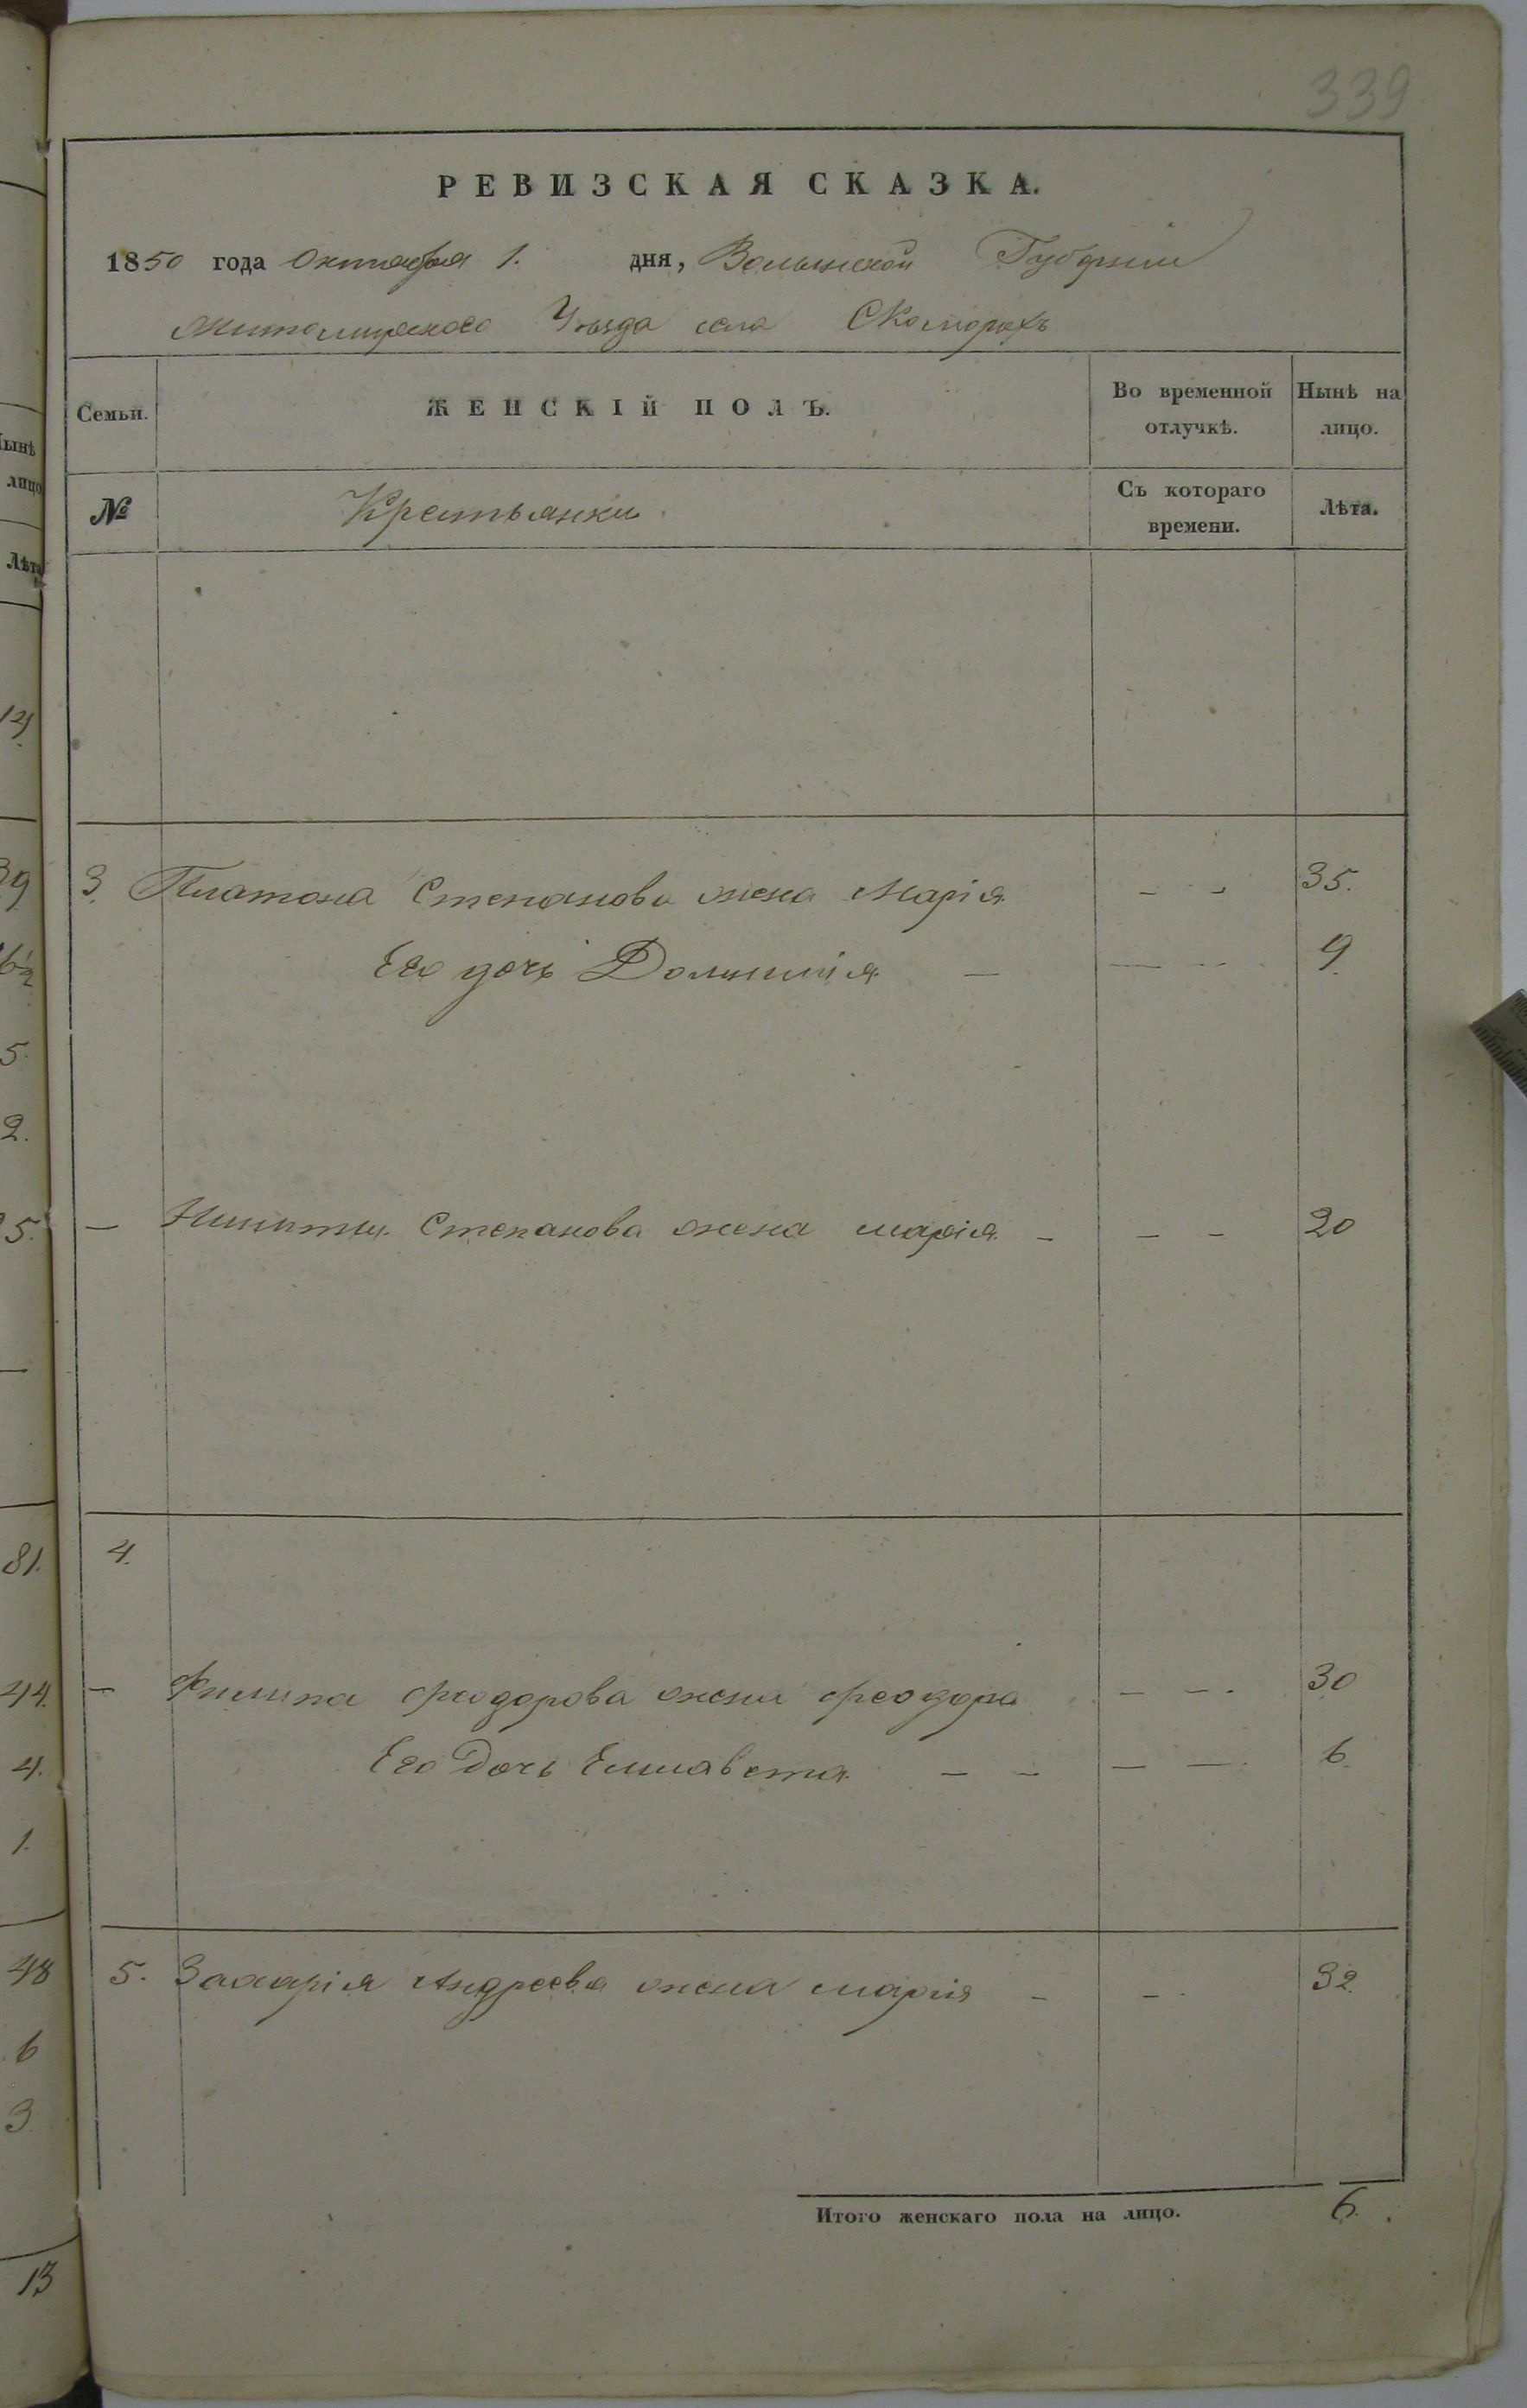 339
РЕВИЗСКАЯ СКАЗКА.
1850 года Октября 1. дня, Волынской Губернии
Житомирского Уезда села Скоморохъ
Семьи. ЖЕНСКІЙ ПОЛЪ. Во временной отлучкѣ. Нынѣ на лицо.
№ Крестьянки Съ котораго времени. Лѣта.
3. Платона Степанова жена Марія - - 35.
Его дочь Домникія - - - 9.
- Никиты Степанова жена марія - - - 20
4.
- Филипа Феодорова жена Феодора - - - 30
Его Дочь Елисавета - - - - 6.
5. Захарія Андреева жена марія - - 32.
Итого женскаго пола на лицо. 6.
ынѣ
лицо
Лѣта
14
39
6½
5.
2.
5.
81.
44.
4.
1.
48
6
3
13